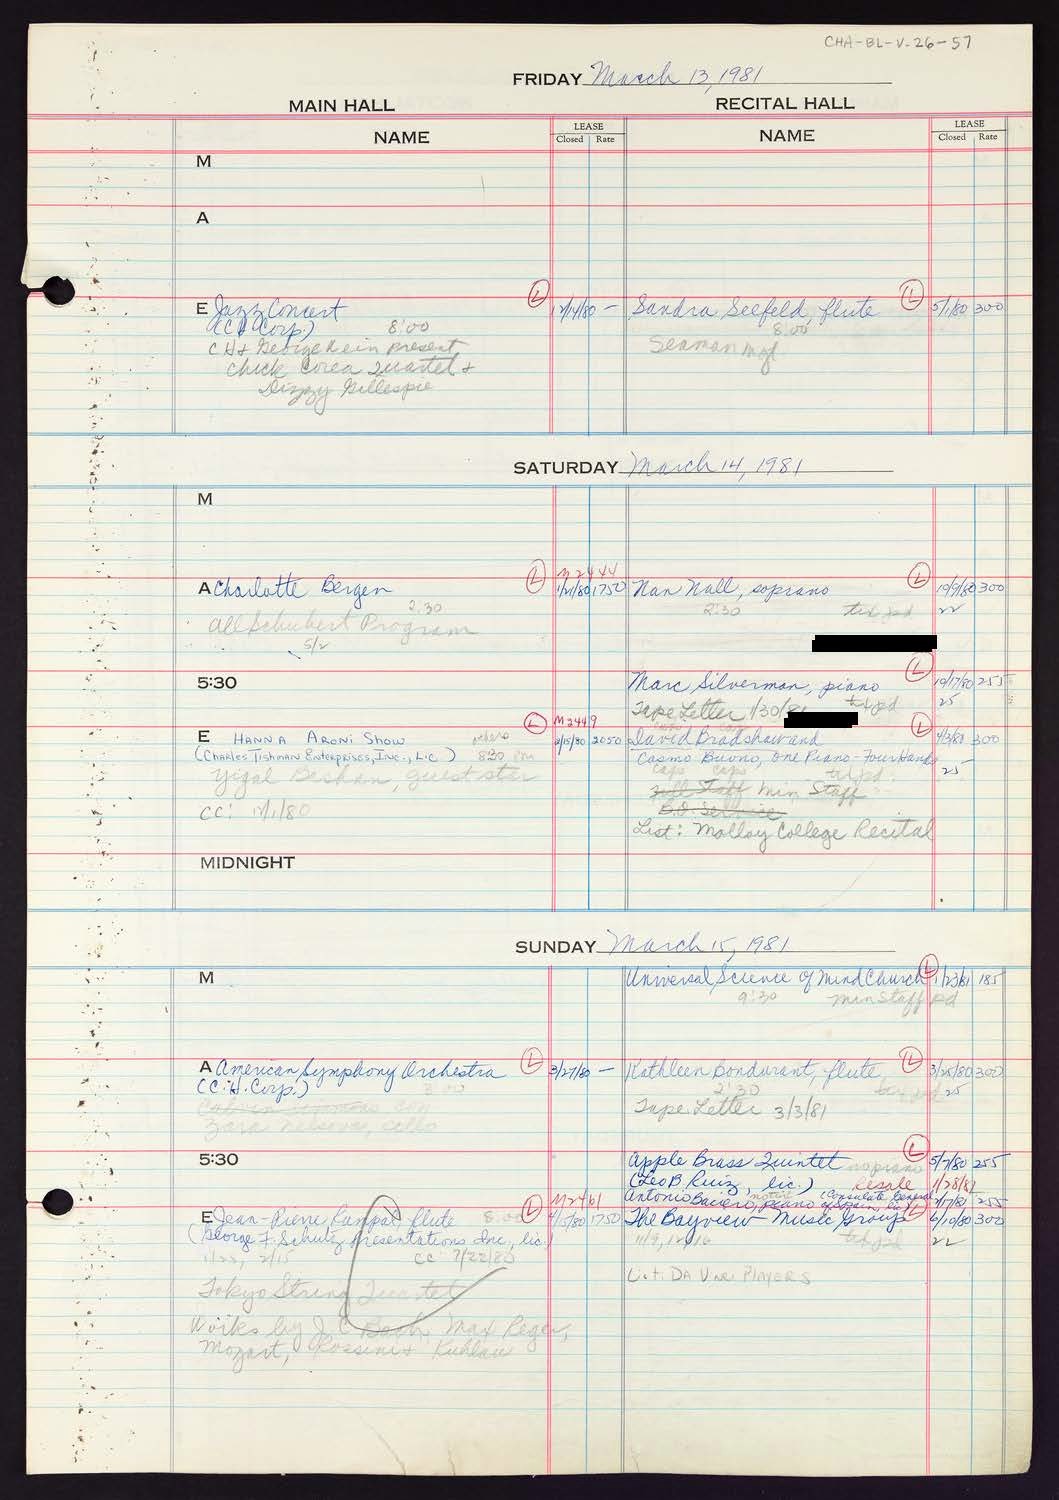 CHA-BL-V.26-57
FRIDAY March 13, 1981
MAIN HALL
RECITAL HALL
NAME
LEASE
Closed Rate
NAME
LEASE
Closed Rate
M
A
E Jazz Concert
(CH Corp.) 8:00
CH & George Wein present
Chick Corea Quartet &
Dizzy Gillespie
L
12/14/80 –
Sandra Seefeld, flute
8:00
Seaman Mgt
L
5/1/80 300
SATURDAY March 14, 1981
M
A Charlotte Bergen
2:30
All Schubert Program
5/2
L
M2444
1/21/80 1750
Nan Nall, soprano
2:30
L
10/9/80 300
22
5:30
Marc Silverman, piano
Tape Letter 1/30/81
L
10/17/80 255
25
E HANNA ARONI SHOW
(CHARLES TISHMAN ENTERPRISES, INC., LIC) 8:30 pm
Yigal Bashan, guest star
CC: 12/1/80
L
M2449
2/15/80 2050
David Bradshaw and
Cosmo Buono, One Piano-Four Hands
caps caps
Full Staff Min Staff
B.O. Service
List: Molloy College Recital
L
4/3/80 300
25
MIDNIGHT
SUNDAY March 15, 1981
M
Universal Science of Mind Church
9:30 min Staff pd
L
1/23/81 185
A American Symphony Orchestra
(C.H. Corp.) 3:00
Zara Nelsova, cello
L
3/27/80 –
Kathleen Bondurant, flute
2:30
Tape Letter 3/3/81
L
3/25/80 300
25
5:30
Apple Brass Quintet no piano
(Leo B. Ruiz, lic.) Resale
L
5/7/80 255
1/28/81
Antonio Baciero, piano (Consulate General of Spain, lic)
255
E Jean-Pierre Rampal, flute 8:00
(George F. Schutz Presentations Inc., lic.)
1/23, 2/15 CC 7/22/80
Tokyo String Quartet
Works by J.C. Bach, Max Reger,
Mozart, Rossini & Kuhlau
L
M2461
4/15/80 1750
The Bayview Music Group
List: DA VINCI PLAYERS
L
6/10/80 300
22